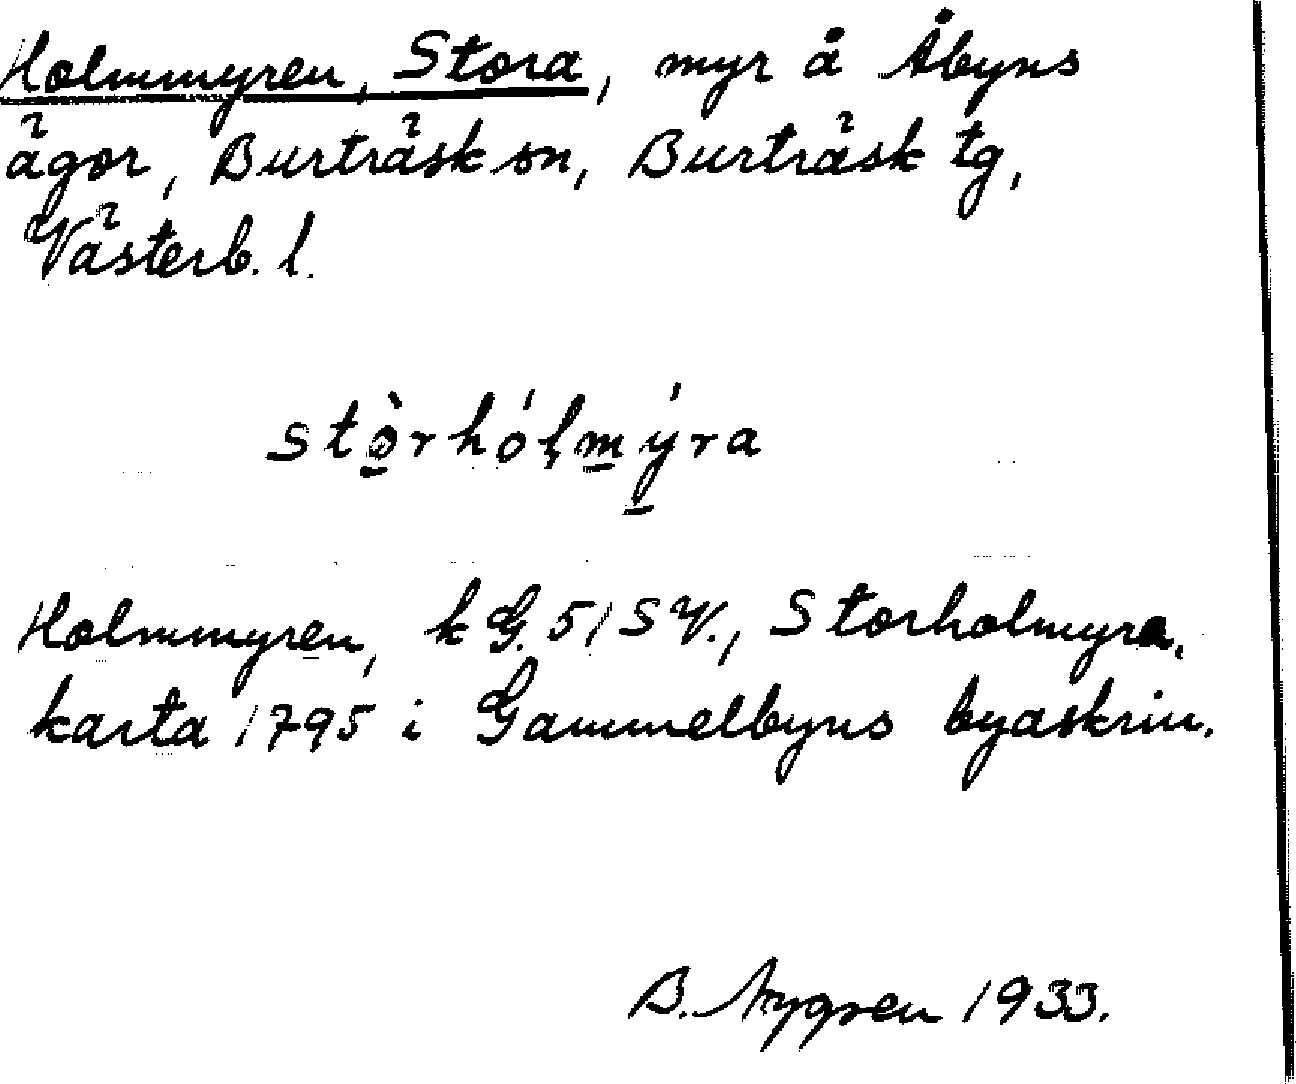 Holmmyren, Stora, myr å Åbyns
ägor, Burträsk sn, Burträsk tg,
Västerb. l.
stò̠rhóļm̠ý̠ra
Holmmyren, k G. 51 SV., Storholmyra,
karta 1795 i Gammelbyns byaskrin.
B. Nygren 1933.